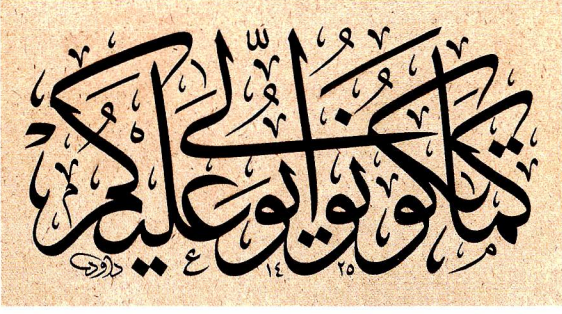 كما تكونوا يولى عليكم
داود ١٤٢٥